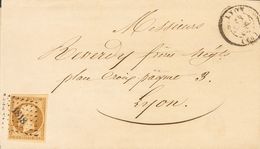 Messieurs
Reverdy frères Négts
place Croix-paquet 3.
Lyon.
LYON
1818